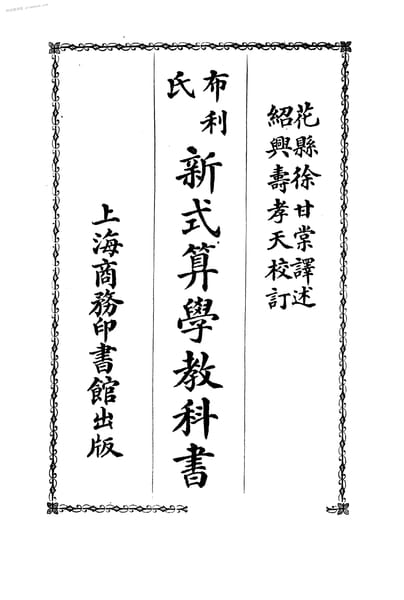 花縣徐甘棠譯述
紹興壽孝天校訂
布利氏
新式算學教科書
上海商務印書館出版